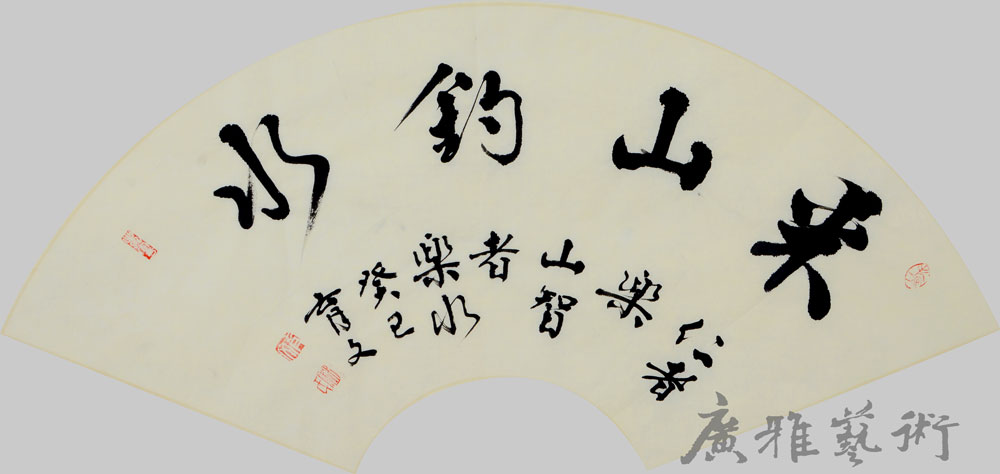 采山釣水
仁者
樂
山智
者
樂水
癸巳
文
廣雅藝術